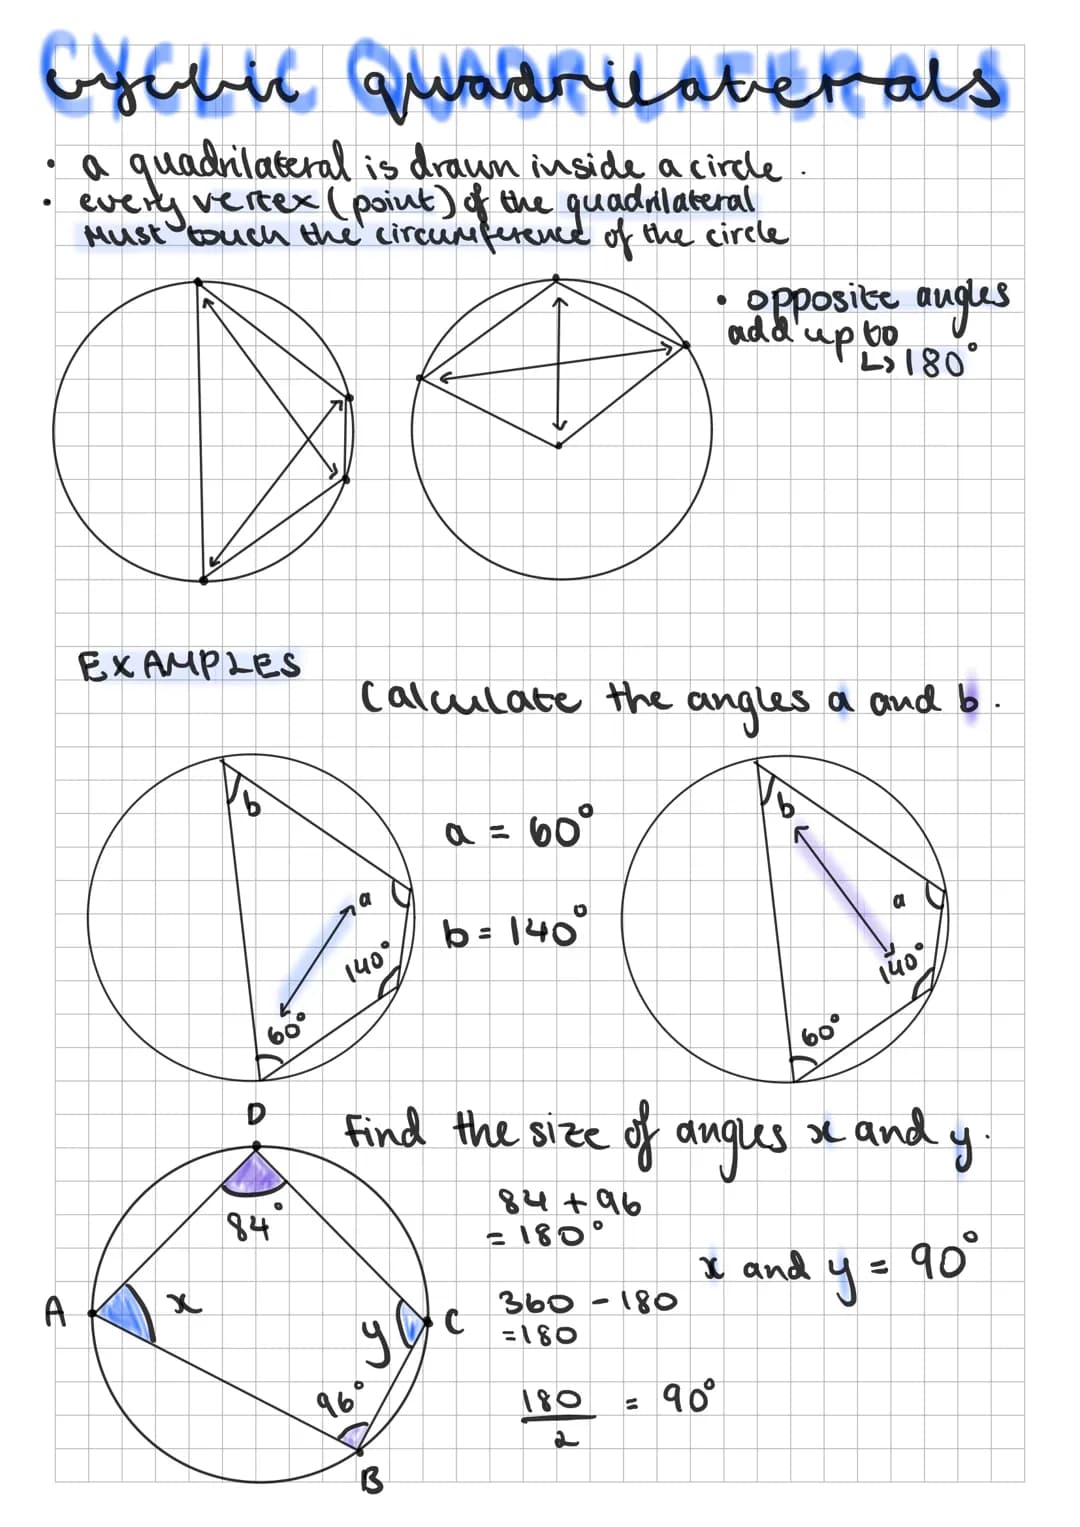 cyclic quadrilaterals
• a quadrilateral is drawn inside a circle.
• every vertex (point) of the quadrilateral
must touch the circumference of the circle
• opposite angles
add up to
↳ 180°
EXAMPLES
Calculate the angles a and b.
b
a
140°
60°
a = 60°
b = 140°
b
a
140°
60°
Find the size of angles x and y.
D
84°
A
x
y
C
96°
B
84 + 96
= 180°
360 - 180
= 180
180
2
= 90°
x and y = 90°